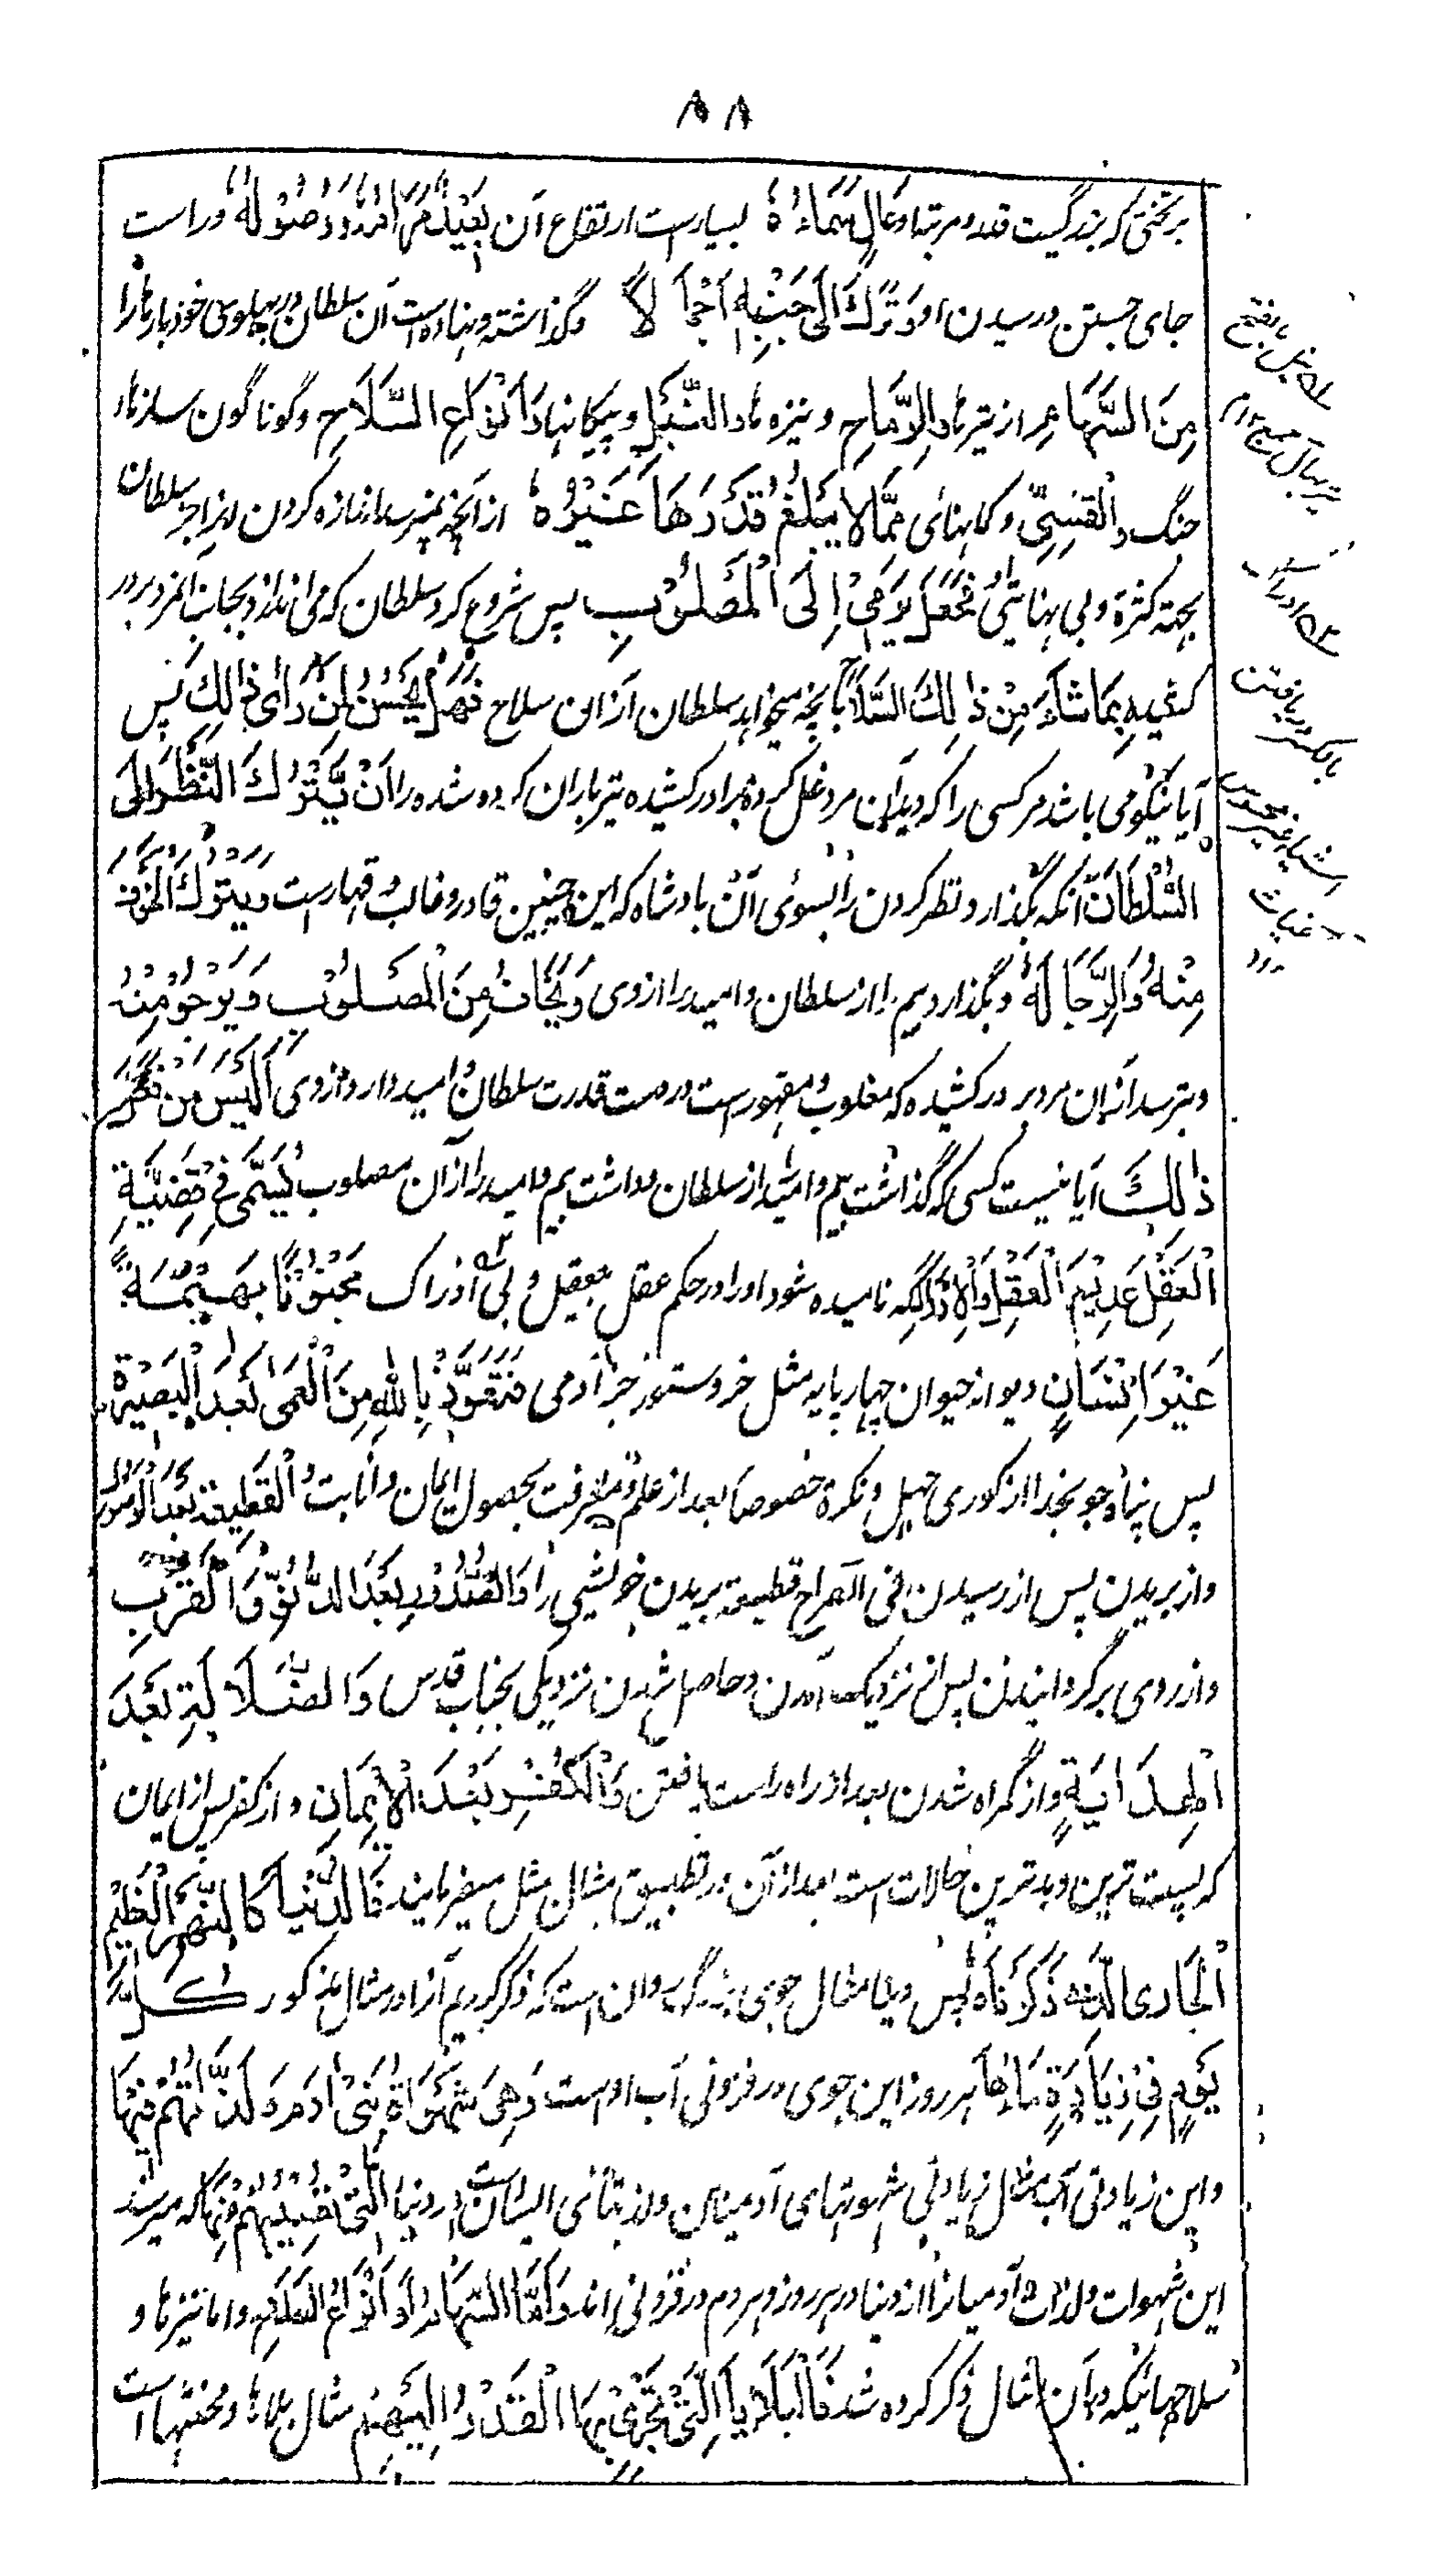 ٨٨
بر تختی که بزرگیست قدر و مرتبه او عَالٍ سَمَاءُهُ بسیارست ارتفاع آن بَعِیْدٌ مَرَامُهُ وَ وُصُوْلُهُ دور است
جای جستن و رسیدن او وَتُرِكَ اِلَی جَنْبِهِ اَحْمَالًا و گذاشته و نهاده است آن سلطان در پهلوی خود بارها را
مِنَ السِّهَامِ از تیرها وَالرِّمَاحِ و نیزه ها وَالنَّبْلِ و پیکانها وَاَنْوَاعِ السِّلَاحِ و گوناگون سازهاء
جنگ وَالْقِسِیِّ و کمانهای مِمَّا لَا یَبْلُغُ قَدْرَهَا غَیْرُهُ از آنچه نمیرسد اندازه کردن آنرا جز سلطان
بجهة کثرة و بی نهایتی فَجَعَلَ یَرْمِیْ اِلَی الْمَصْلُوْبِ پس شروع کرد سلطان که می اندازد بجانب آنمرد بردار
کشیده بِمَا شَاءَ مِنْ ذَالِكَ السِّلَاحِ بآنچه میخواهد سلطان از آن سلاح فَهَلْ یَحْسُنُ لِمَنْ رَاٰی ذَالِكَ پس
آیا نیکو می باشد مر کسی را که دید آن مرد غل کرده بردار کشیده تیر باران کرده شده را اَنْ یَتْرُكَ النَّظَرَ اِلَی
السُّلْطَانِ آنکه بگذارد نظر کردن را بسوئی آن بادشاه که این چنین قادر و غالب و قهارست وَیَتْرُكَ الْخَوْفَ
مِنْهُ وَالرِّجَاءَ لَهُ و بگذارد بیم را از سلطان و امید را از وی وَیَخَافُ مِنَ الْمَصْلُوْبِ وَیَرْجُوْ مِنْهُ
و بترسد از آن مرد بردار کشیده که مغلوب و مقهورست در دست قدرت سلطان و امید دارد از وی اَلَیْسَ مَنْ فَعَلَ
ذَالِكَ آیا نیست کسی که گذاشت بیم و امید از سلطان و داشت بیم و امید را از آن مصلوب یُسَمّٰی فِیْ قَضِیَّةِ
الْعَقْلِ عَدِیْمَ الْعَقْلِ وَالْاِدْرَاكِ که نامیده شود او را در حکم عقل بیعقل و بی ادراک مَجْنُوْنًا بَهِیْمَةً
غَیْرَ اِنْسَانٍ دیوانه حیوان چهارپایه مثل خر و ستور جز آدمی فَنَعُوْذُ بِاللهِ مِنَ الْعَمٰی بَعْدَ الْبَصِیْرَةِ
پس پناه جو بخدا از کوری جهل و نکرة خصوصا بعد از علم و معرفت بحصول ایمان و انابت وَالْقَطِیْعَةِ بَعْدَ الْوُصُوْلِ
و از بریدن پس از رسیدن فی الصراح قطیعة بریدن خویشی را وَالصُّدُوْدِ بَعْدَ الدُّنُوِّ وَالْقُرْبِ
و از روی برگردانیدن پس از نزدیک آمدن و حاصل شدن نزدیکی بجناب قدس وَالضَّلَالَةِ بَعْدَ
الْهِدَایَةِ و از گمراه شدن بعد از راه راست یافتن وَالْكُفْرِ بَعْدَ الْاِیْمَانِ و از کفر پس از ایمان
که پست ترین و بدترین حالات است بعد از آن در تطبیق مثال مثل میفرمایند فَالدُّنْیَا كَالنَّهْرِ الْعَظِیْمِ
الْجَارِی الَّذِیْ ذَكَرْنَاهُ پس دنیا مثال جوی بزرگ روان است که ذکر کردیم آنرا در مثال مذکور كُلَّ
یَوْمٍ فِیْ زِیَادَةِ مَاءِهَا هر روز این جوی در فزونی آب اوست وَهِیَ شَهَوَاةُ بَنِیْ اٰدَمَ وَلَذَّاتُهُمْ فِیْهَا
و این زیادتی آب مثال زیادتی شهوتهای آدمیان و لذتهائی ایشان است در دنیا الَّتِیْ تُصِیْبُهُمْ مِنْهَا که میرسد
این شهوات و لذات آدمیانرا از دنیا در هر روز و هر دم در فزونی اند وَاَمَّا السِّهَامُ وَاَنْوَاعُ السِّلَاحِ و اما تیرها و
سلاحهائیکه در آن مثال ذکر کرده شد فَالْبَلَایَا الَّتِیْ یَجْرِیْ بِهَا الْقَدَرُ اِلَیْهِمْ مثال بلاها و محنتها است